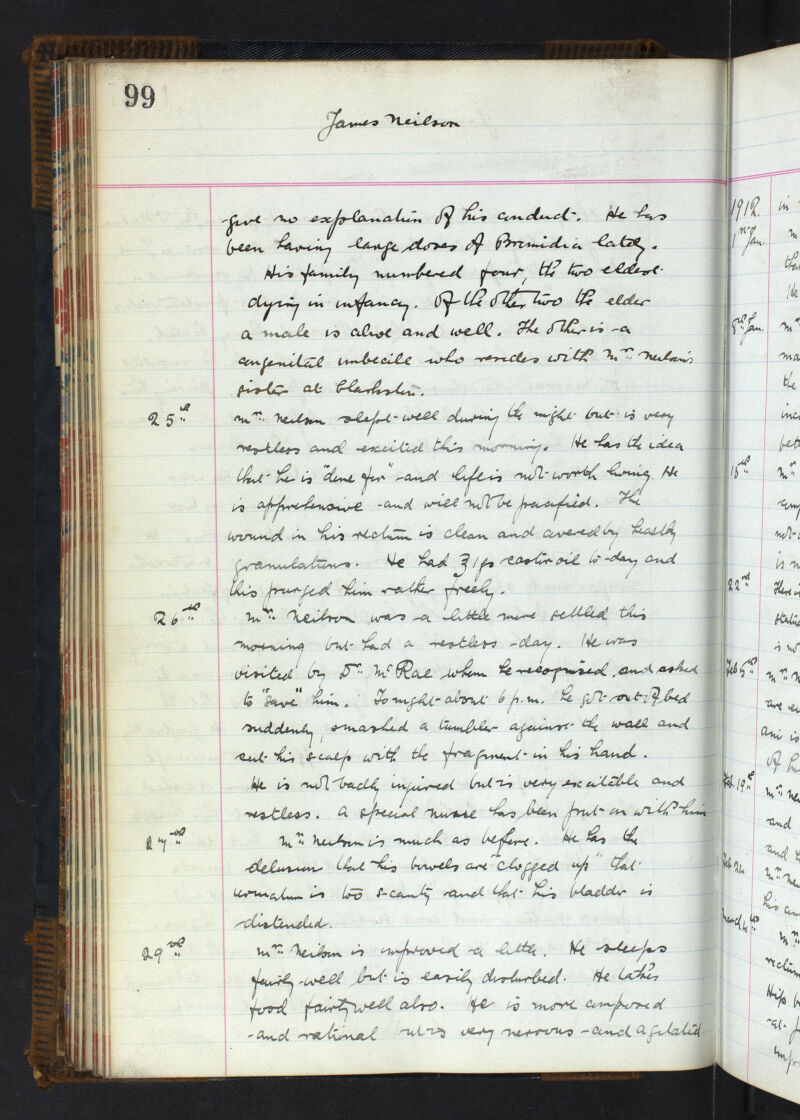 99
James Neilson
give no explanation of his conduct. He has
been having large doses of Bromidia lately.
His family numbered four, the two eldest
dying in infancy. Of the other two the elder
a male is alive and well. The other is a
congenital imbecile who resides with Mr. Neilson's
sister at Clarkston.
25th Mr. Neilson slept well during the night but is very
restless and excited this morning. He has the idea
that he is "done for" and life is not worth living. He
is apprehensive and will not be pacified. The
wound in his rectum is clean and covered by healthy
granulations. He had ℥jss castor oil to-day and
this purged him rather freely.
26th Mr. Neilson was a little more settled this
morning but had a restless day. He was
visited by Dr. McRae whom he recognised and asked
to "save" him. Tonight about 6 p.m. he got out of bed
suddenly, smashed a tumbler against the wall and
cut his scalp with the fragment in his hand.
He is not badly injured but is very excitable and
restless. A special nurse has been put on with him
27th Mr. Neilson is much as before. He has the
delusion that his bowels are "clogged up" that
urination is too scanty and that his bladder is
distended.
29th Mr. Neilson is improved a little. He sleeps
fairly well but is easily disturbed. He takes
food fairly well also. He is more composed
and rational but is very nervous and agitated
1912. in
1st Jan. m
the
He
8th Jan. Mr.
ma
the
inc
bett
15th Mr.
not
is n
22nd There is
static
is no
Feb 5th Mr. N
are
ani is
of hi
Feb. 19th Mr. Ne
and
and
Feb 26 Mr. Nei
his
March 4th Mr.
rectum
Hip b
at
impr